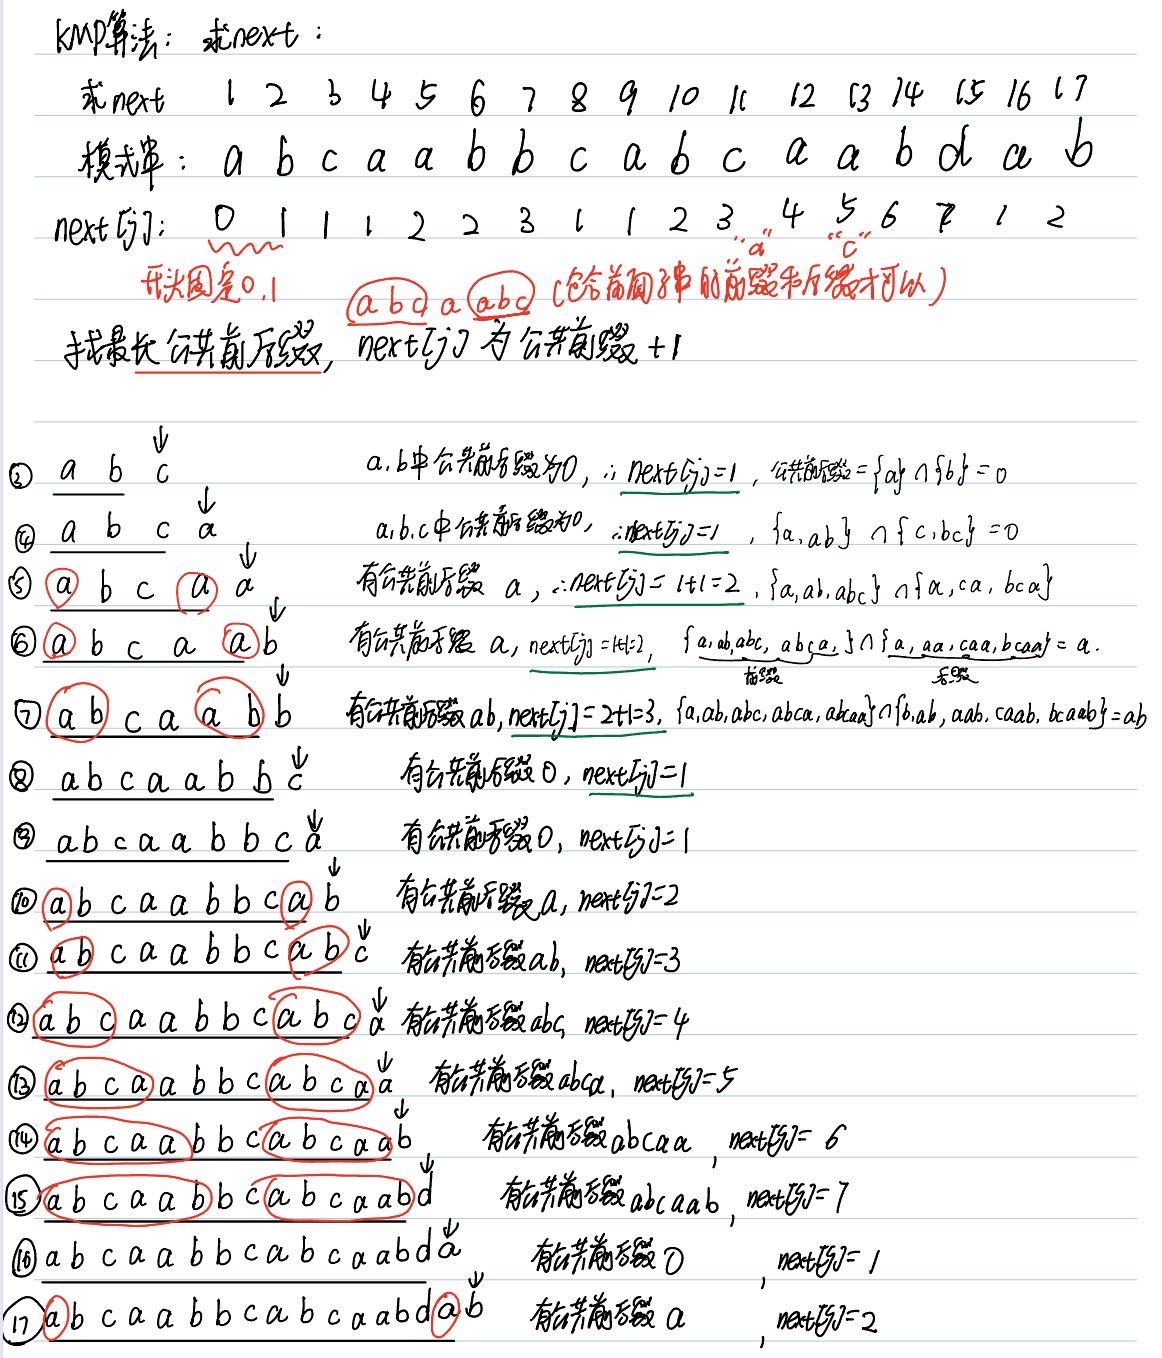 KMP算法: 求next:
求next 1 2 3 4 5 6 7 8 9 10 11 12 13 14 15 16 17
模式串: a b c a a b b c a b c a a b d a b
next[j]: 0 1 1 1 2 2 3 1 1 2 3 4 5 6 7 1 2
"a" "c"
开头固定0,1 abc a abc (包含前面子串的前缀和后缀才可以)
找最长公共前后缀, next[j] 为公共前缀+1
③ a b c a,b中公共前后缀为0, ∴next[j]=1, 公共前后缀={a}∩{b}=0
④ a b c a a,b,c中公共前后缀为0, ∴next[j]=1, {a,ab}∩{c,bc}=0
⑤ a b c a a 有公共前后缀 a, ∴next[j]=1+1=2, {a,ab,abc}∩{a,ca,bca}
⑥ a b c a a b 有公共前后缀 a, next[j]=1+1=2, {a,ab,abc,abca,}∩{a,aa,caa,bcaa}=a.
前缀 后缀
⑦ a b c a a b b 有公共前后缀ab, next[j]=2+1=3, {a,ab,abc,abca,abcaa}∩{b,ab,aab,caab,bcaab}=ab
⑧ a b c a a b b c 有公共前后缀0, next[j]=1
⑨ a b c a a b b c a 有公共前后缀0, next[j]=1
⑩ a b c a a b b c a b 有公共前后缀a, next[j]=2
⑪ a b c a a b b c a b c 有公共前后缀ab, next[j]=3
⑫ a b c a a b b c a b c a 有公共前后缀abc, next[j]=4
⑬ a b c a a b b c a b c a a 有公共前后缀abca, next[j]=5
⑭ a b c a a b b c a b c a a b 有公共前后缀abcaa, next[j]=6
⑮ a b c a a b b c a b c a a b d 有公共前后缀abcaab, next[j]=7
⑯ a b c a a b b c a b c a a b d a 有公共前后缀0, next[j]=1
⑰ a b c a a b b c a b c a a b d a b 有公共前后缀a, next[j]=2